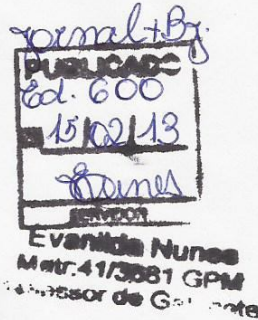 Jornal + Bz.
PUBLICADO
Ed. 600
15/02/13
Eunes
SERVIDOR
Evanilda Nunes
Matr. 41/3681 GPM
Assessor de Gabinete